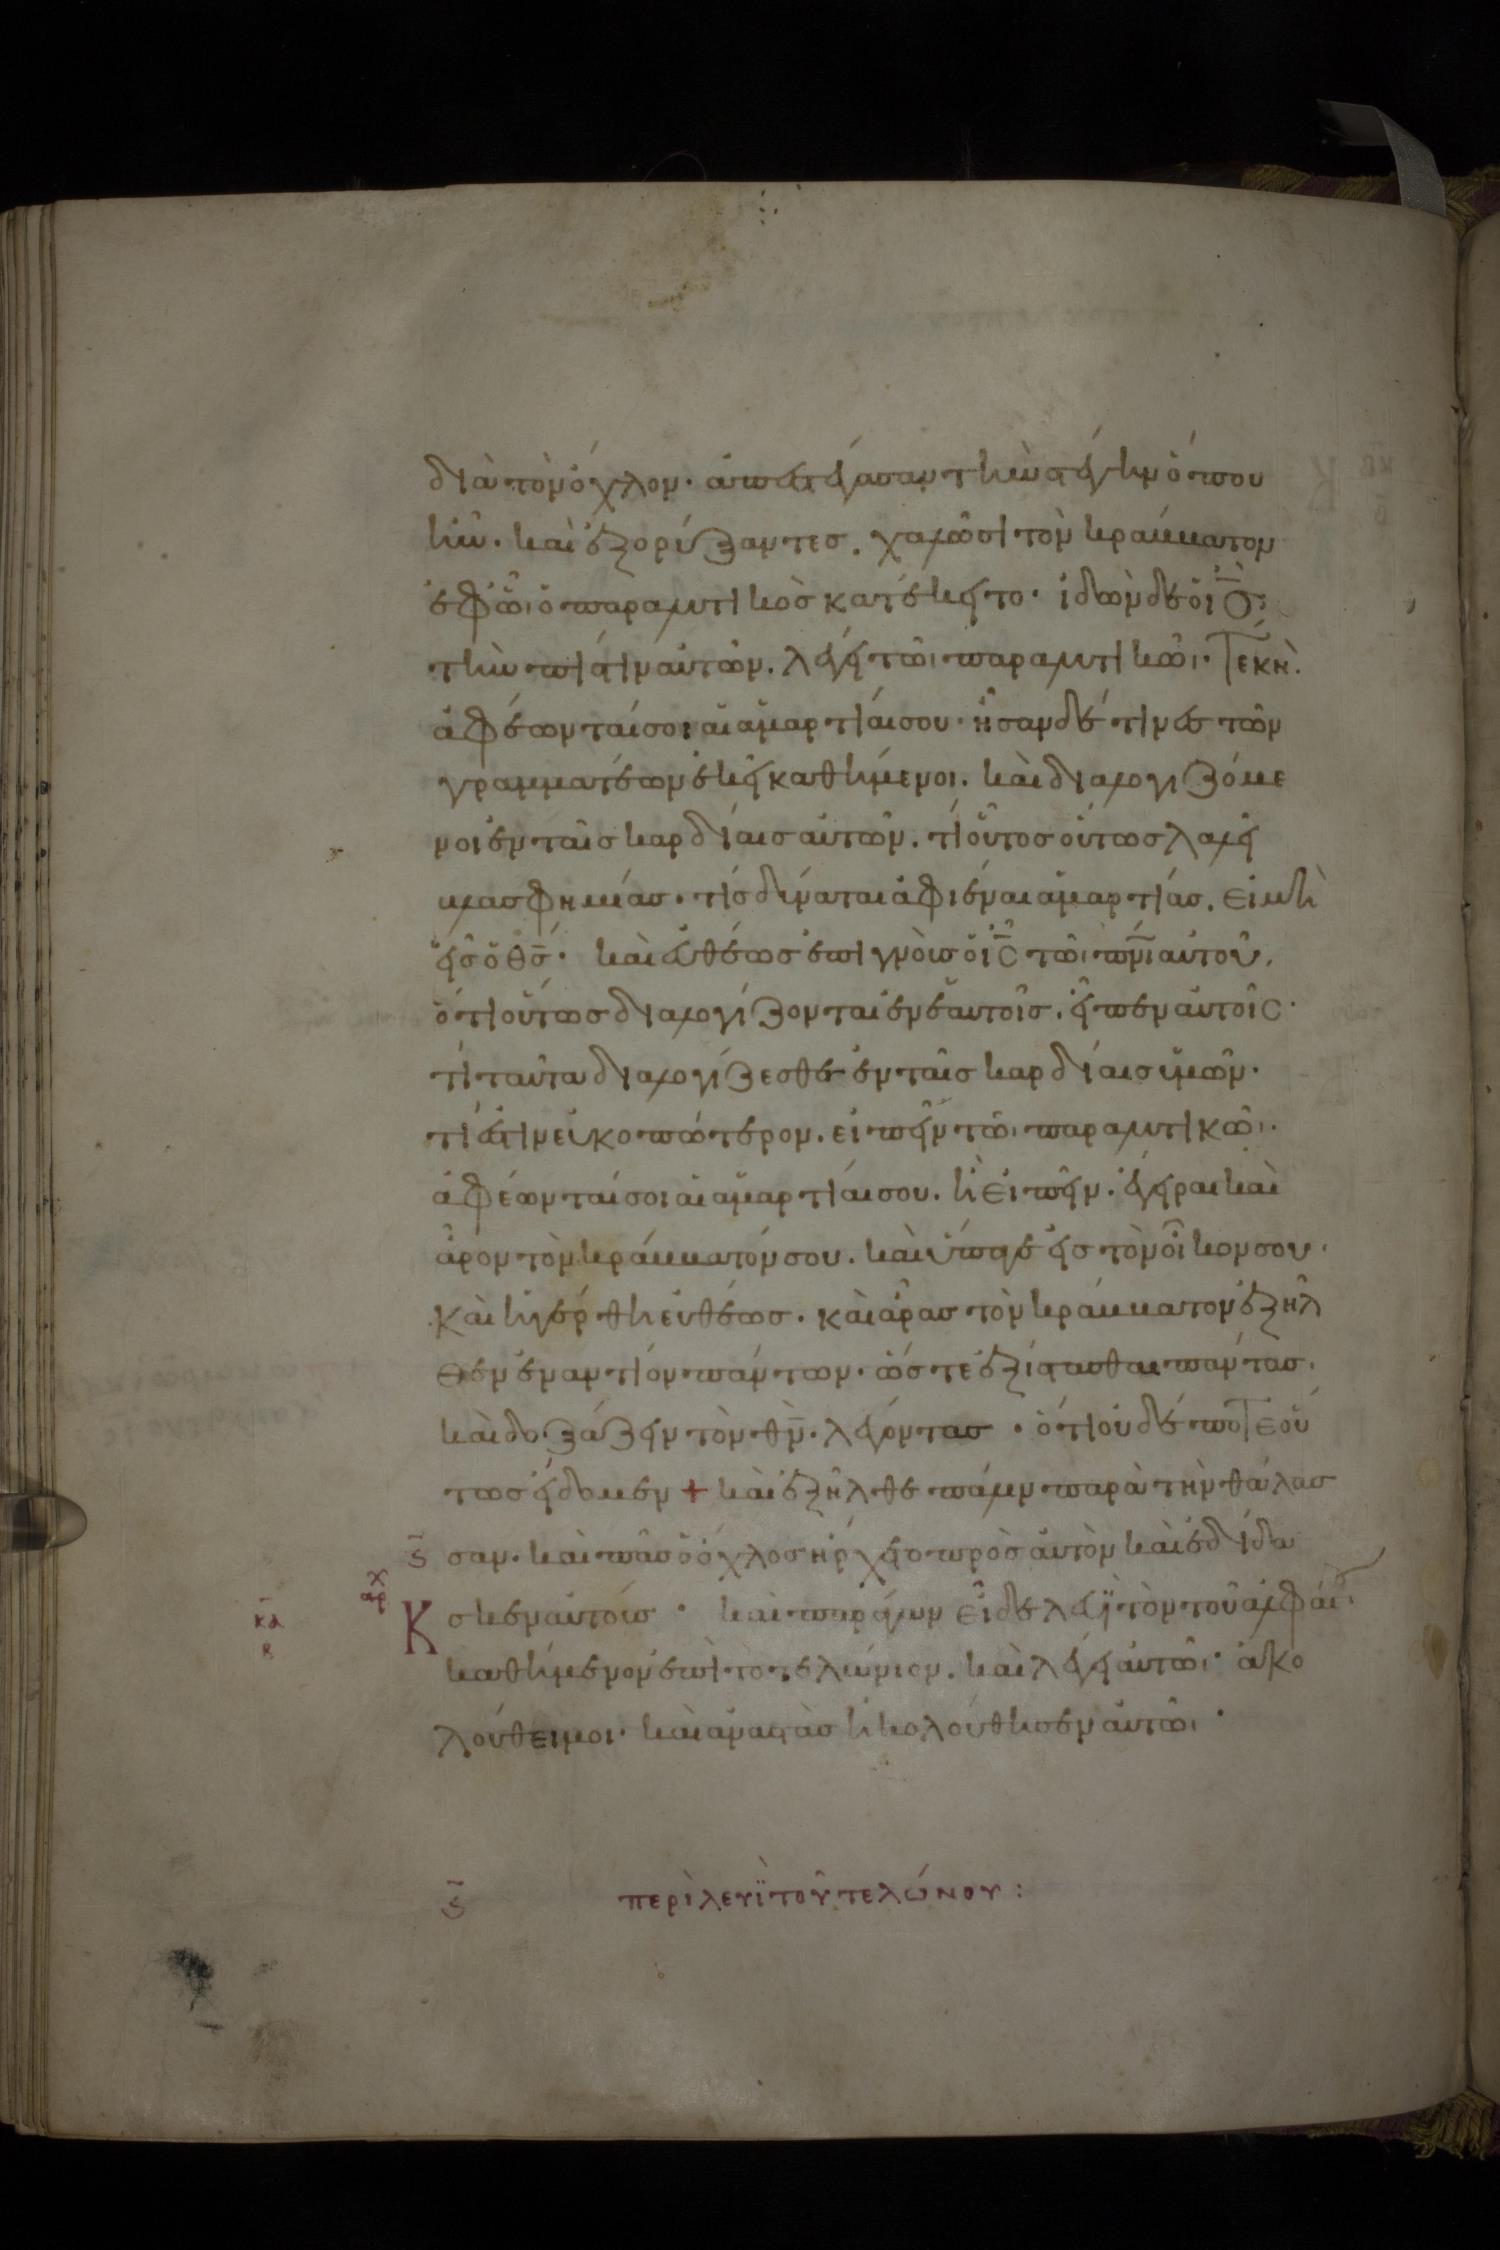 διὰ τὸν ὄχλον· ἀπεστέγασαν τὴν στέγην ὅπου
ἦν. καὶ ἐξορύξαντες. χαλῶσι τὸν κράββατον
ἐφ ὧι ὁ παραλυτικὸς κατέκειτο· ἰδὼν δὲ ὁ ἰς̄
τὴν πίστιν αὐτῶν. λέγει τῶι παραλυτικῶι· Τέκν.
ἀφέωνταί σοι αἱ ἁμαρτίαι σου· ἦσαν δέ τινες τῶν
γραμματέων ἐκεῖ καθήμενοι. καὶ διαλογιζόμε
νοι ἐν ταῖς καρδίαις αὐτῶν. τί οὗτος οὕτως λαλεῖ
βλασφημίας· τίς δύναται ἀφιέναι ἁμαρτίας. εἰ μὴ
εἷς ὁ θς̄· καὶ εὐθέως ἐπιγνοὺς ὁ ἰς̄ τῶι πνῑ αὐτοῦ.
ὅτι οὕτως διαλογίζονται ἐν ἑαυτοῖς. εἶπεν αὐτοῖς·
τί ταῦτα διαλογίζεσθε ἐν ταῖς καρδίαις ὑμῶν·
τί ἐστιν εὐκοπώτερον. εἰπεῖν τῶι παραλυτικῶι·
ἀφέωνταί σοι αἱ ἁμαρτίαι σου. ἢ εἰπεῖν. ἔγειραι καὶ
ἆρον τὸν κράββατόν σου. καὶ ὕπαγε εἰς τὸν οἶκον σου·
καὶ ἠγέρθη εὐθέως. καὶ ἄρας τὸν κράββατον ἐξῆλ
θεν ἐναντίον πάντων· ὥστε ἐξίστασθαι πάντας.
καὶ δοξάζειν τὸν θν̄· λέγοντας · ὅτι οὐδέποτε οὕ
τως εἴδομεν + καὶ ἐξῆλθε πάλιν παρὰ τὴν θάλασ
ς̄ σαν· καὶ πᾶς ὁ ὄχλος ἤρχετο πρὸς αὐτὸν καὶ ἐδίδα
κα β αρχ Κ σκεν αὐτούς · καὶ παράγων εἶδε λευῒ τὸν τοῦ ἀλφαίου
καθήμενον ἐπὶ τὸ τελώνιον. καὶ λέγει αὐτῶι· ἀκο
λούθει μοι· καὶ ἀναστὰς ἠκολούθησεν αὐτῶι ·
ς̄ περὶ λευῒ τοῦ τελώνου :